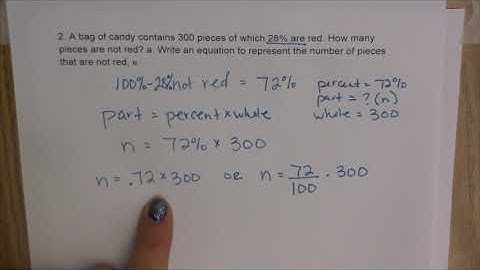 2. A bag of candy contains 300 pieces of which 28% are red. How many
pieces are not red? a. Write an equation to represent the number of pieces
that are not red, n
100%-28% not red = 72%
percent = 72%
part = ? (n)
whole = 300
part = percent × whole
n = 72% × 300
n = .72 × 300 or n = 72/100 · 300